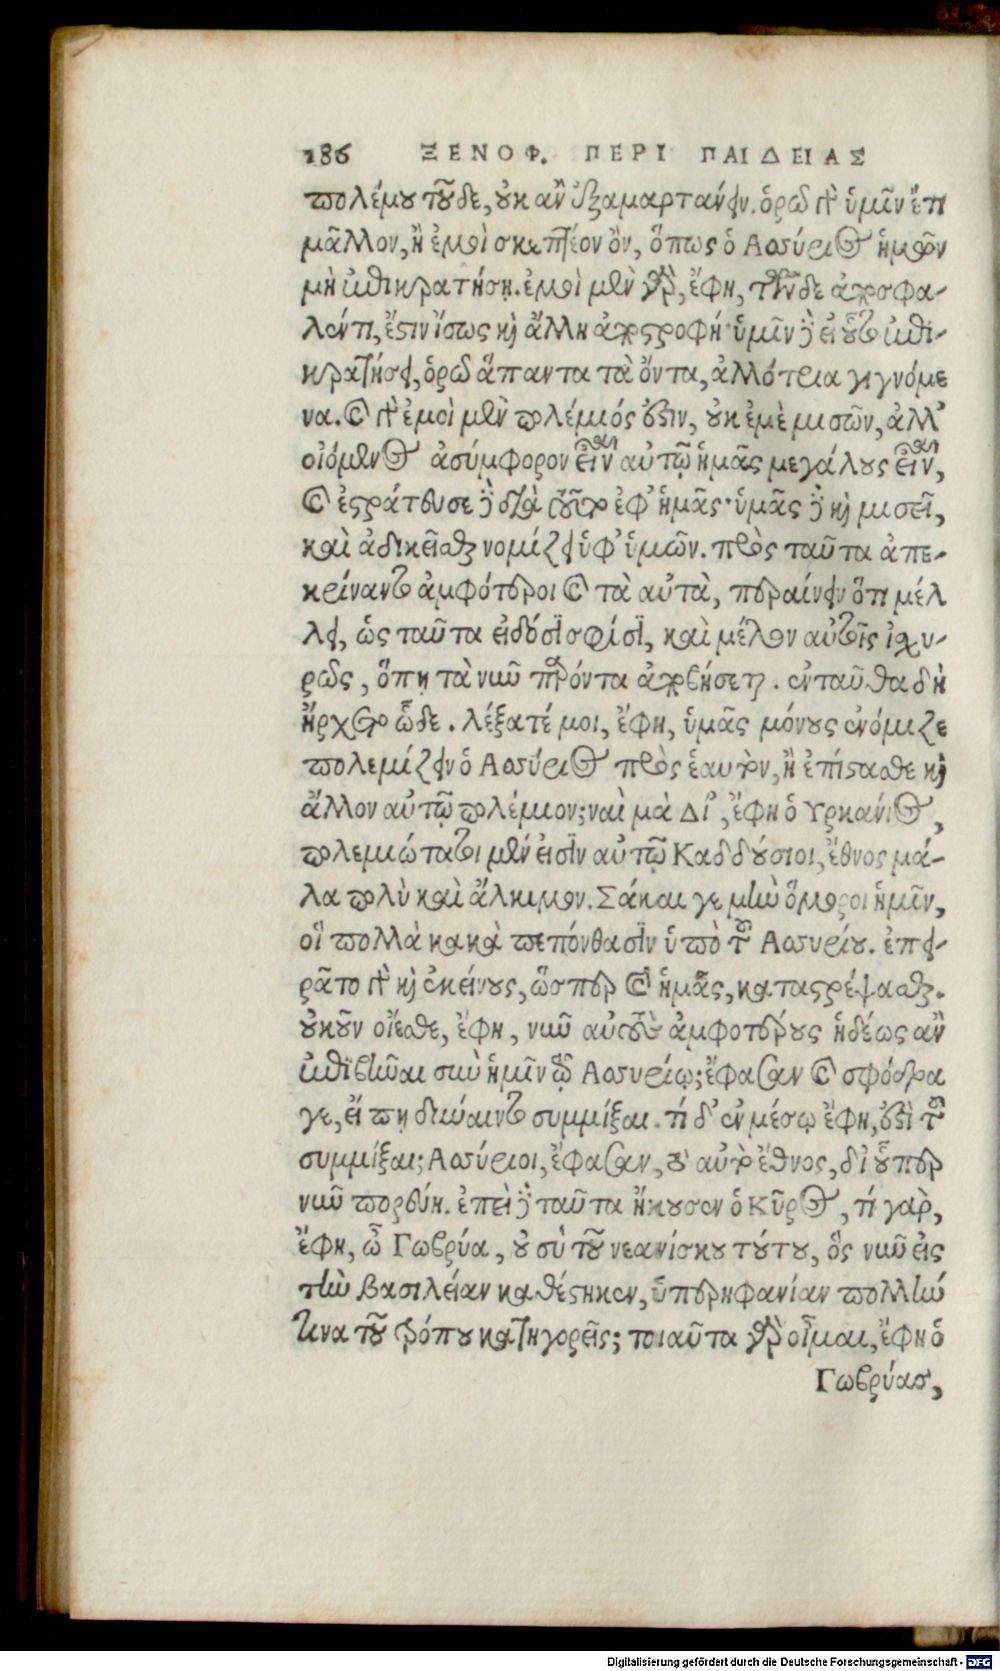 186 ΞΕΝΟΦ. ΠΕΡΙ ΠΑΙΔΕΙΑΣ
πολέμου τοῦδε, οὐκ ἂν ἐξαμαρτάνειν. ὁρῶ γὰρ ὑμῖν ἔτι
μᾶλλον, ἢ ἐμοὶ σκεπτέον ὂν, ὅπως ὁ Ἀσσύριος ἡμῶν
μὴ ἐπικρατήσῃ. ἐμοὶ μὲν γὰρ, ἔφη, τῶνδε ἀποσφα-
λέντι, ἔστιν ἴσως καὶ ἄλλη ἀποστροφή· ὑμῖν δὲ εἰ οὗτος ἐπι-
κρατήσει, ὁρῶ ἅπαντα τὰ ὄντα, ἀλλότρια γιγνόμε
να. καὶ γὰρ ἐμοὶ μὲν πολέμιός ἐστιν, οὐκ ἐμὲ μισῶν, ἀλλ'
οἰόμενος ἀσύμφορον εἶναι αὐτῷ ἡμᾶς μεγάλους εἶναι,
καὶ ἐστράτευσε δὲ διὰ τοῦτο ἐφ' ἡμᾶς· ὑμᾶς δὲ καὶ μισεῖ,
καὶ ἀδικεῖσθαι νομίζει ὑφ' ὑμῶν. πρὸς ταῦτα ἀπε-
κρίναντο ἀμφότεροι καὶ τὰ αὐτὰ, περαίνειν ὅτι μέλ
λει, ὡς ταῦτα εἰδόσι σφίσι, καὶ μέλον αὐτοῖς ἰσχυ-
ρῶς, ὅπῃ τὰ νῦν παρόντα ἀποβήσεται. ἐνταῦθα δὴ
ἤρχετο ὧδε. λέξατέ μοι, ἔφη, ὑμᾶς μόνους ἐνόμιζε
πολεμίζειν ὁ Ἀσσύριος πρὸς ἑαυτὸν, ἢ ἐπίστασθε καὶ
ἄλλον αὐτῷ πολέμιον; ναὶ μὰ Δί', ἔφη ὁ Ὑρκάνιος,
πολεμιώτατοι μέν εἰσιν αὐτῷ Καδδούσιοι, ἔθνος μά-
λα πολὺ καὶ ἄλκιμον. Σάκαι γε μὴν ὅμοροι ἡμῖν,
οἳ πολλὰ κακὰ πεπόνθασιν ὑπὸ τοῦ Ἀσσυρίου. ἐπει-
ρᾶτο γὰρ καὶ ἐκείνους, ὥσπερ καὶ ἡμᾶς, καταστρέψασθαι.
οὐκοῦν οἴεσθε, ἔφη, νῦν αὐτοὺς ἀμφοτέρους ἡδέως ἂν
ἐπιβῆναι σὺν ἡμῖν τῷ Ἀσσυρίῳ; ἔφασαν καὶ σφόδρα
γε, εἴ πῃ δύναιντο συμμίξαι. τί δ' ἐν μέσῳ ἔφη, ἐστὶ τοῦ
συμμίξαι; Ἀσσύριοι, ἔφασαν, τὸ αὐτὸ ἔθνος, δι' οὗπερ
νῦν πορεύῃ. ἐπεὶ δὲ ταῦτα ἤκουσεν ὁ Κῦρος, τί γὰρ,
ἔφη, ὦ Γωβρύα, οὐ σὺ τοῦ νεανίσκου τούτου, ὃς νῦν εἰς
τὴν βασιλείαν καθέστηκεν, ὑπερηφανίαν πολλήν
τινα τοῦ τρόπου κατηγορεῖς; τοιαῦτα γὰρ οἶμαι, ἔφη ὁ
Γωβρύας,
Digitalisierung gefördert durch die Deutsche Forschungsgemeinschaft - DFG